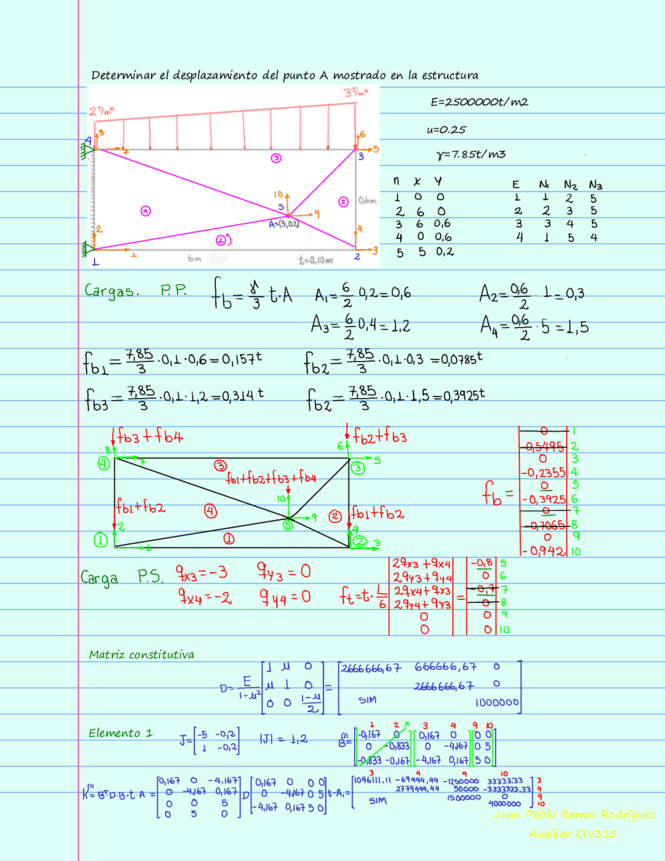 Determinar el desplazamiento del punto A mostrado en la estructura
3T/m²
2T/m²
E=2500000t/m2
u=0.25
γ=7.85t/m3
8
4
7
6
5
3
③
10
5
9
②
0,6m
④
A=(5,0.2)
2
①
4
1
1
6m
t=0,10m
3
2
n x y
1 0 0
2 6 0
3 6 0,6
4 0 0,6
5 5 0,2
E N1 N2 N3
1 1 2 5
2 2 3 5
3 3 4 5
4 1 5 4
Cargas. P.P. fb = γ/3 t·A A1 = 6/2 0,2 = 0,6 A2 = 0,6/2 · 1 = 0,3
A3 = 6/2 0,4 = 1,2 A4 = 0,6/2 · 5 = 1,5
fb1 = 7,85/3 · 0,1 · 0,6 = 0,157t fb2 = 7,85/3 · 0,1 · 0,3 = 0,0785t
fb3 = 7,85/3 · 0,1 · 1,2 = 0,314 t fb2 = 7,85/3 · 0,1 · 1,5 = 0,3925t
fb3 + fb4
fb2 + fb3
8
7
6
5
④
③
③
fb1+fb2+fb3+fb4
10
④
fb1 + fb2
⑤
9
②
fb1 + fb2
2
4
①
①
1
②
3
fb =
0 1
-0,5495 2
0 3
-0,2355 4
0 5
-0,3925 6
0 7
-0,7065 8
0 9
-0,942 10
Carga P.S. qx3 = -3 qy3 = 0
qx4 = -2 qy4 = 0
ft = t · L/6
2qx3 + qx4 -0,8 5
2qy3 + qy4 0 6
2qx4 + qx3 = -0,7 7
2qy4 + qy3 0 8
0 0 9
0 0 10
Matriz constitutiva
D = E/1-μ²
1 μ 0 2666666,67 666666,67 0
μ 1 0 = 2666666,67 0
0 0 1-μ/2 SIM 1000000
Elemento 1
J = -5 -0,2
1 -0,2
|J| = 1,2
B(1) =
1 2 3 4 9 10
-0,167 0 0,167 0 0 0
0 -0,833 0 -4,167 0 5
-0,833 -0,167 -4,167 0,167 5 0
K(1) = BT·D·B·t·A =
0,167 0 -4,167
0 -4,167 0,167
0 0 5
0 5 0
D
0,167 0 0 0
0 -4,167 0 5
-4,167 0,167 5 0
t·A1 =
3 4 9 10
1046111.11 -69444,44 -1250000 33333.33 3
2779444,44 50000 -3333333.33 4
SIM 1500000 0 9
4000000 10
Juan Pablo Ramos Rodríguez
Auxiliar CIV313